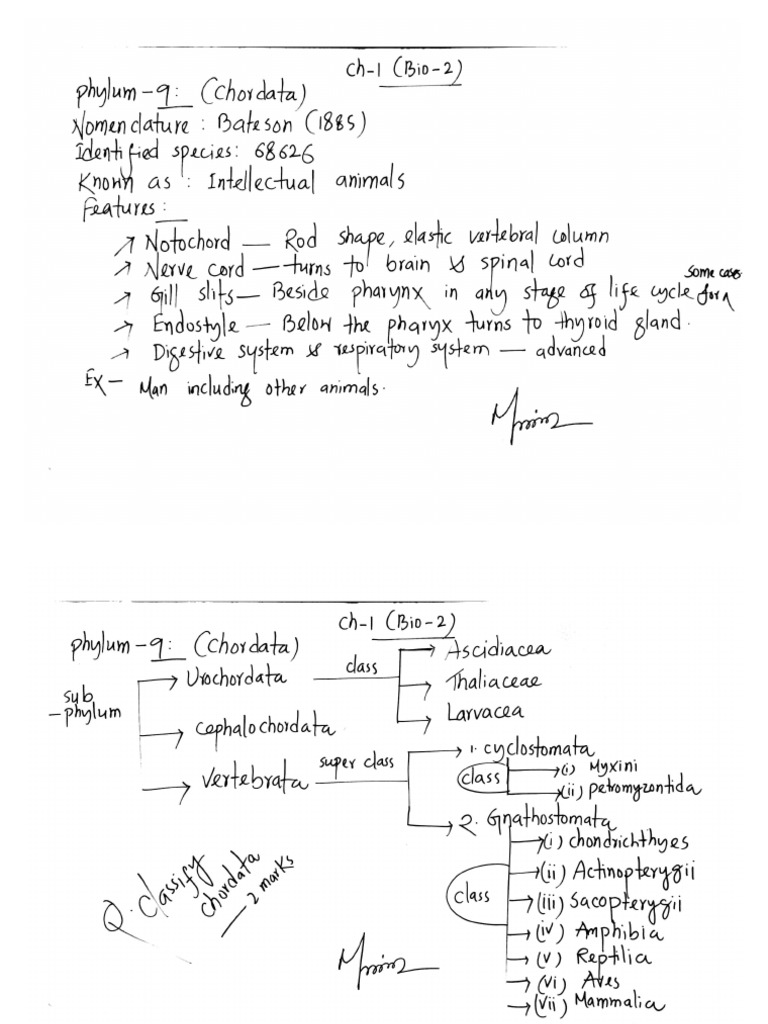 Ch-1 (Bio-2)
phylum-9: (Chordata)
Nomenclature: Bateson (1885)
Identified species: 68626
Known as: Intellectual animals
Features:
→ Notochord — Rod shape, elastic vertebral column
→ Nerve cord — turns to brain & spinal cord
→ Gill slits — Beside pharynx in any stage of life cycle for
some cases
→ Endostyle — Below the pharyx turns to thyroid gland.
→ Digestive system & respiratory system — advanced
Ex — Man including other animals.
Ch-1 (Bio-2)
phylum-9: (Chordata)
sub
-phylum
→ Urochordata
class
→ Ascidiacea
→ Thaliaceae
→ Larvacea
→ Cephalochordata
→ vertebrata
super class
→ 1. cyclostomata
class
→ (i) Myxini
→ (ii) petromyzontida
→ 2. Gnathostomata
class
→ (i) chondrichthyes
→ (ii) Actinopterygii
→ (iii) Sacopterygii
→ (iv) Amphibia
→ (v) Reptilia
→ (vi) Aves
→ (vii) Mammalia
Q. Classify
chordata
— 2 marks